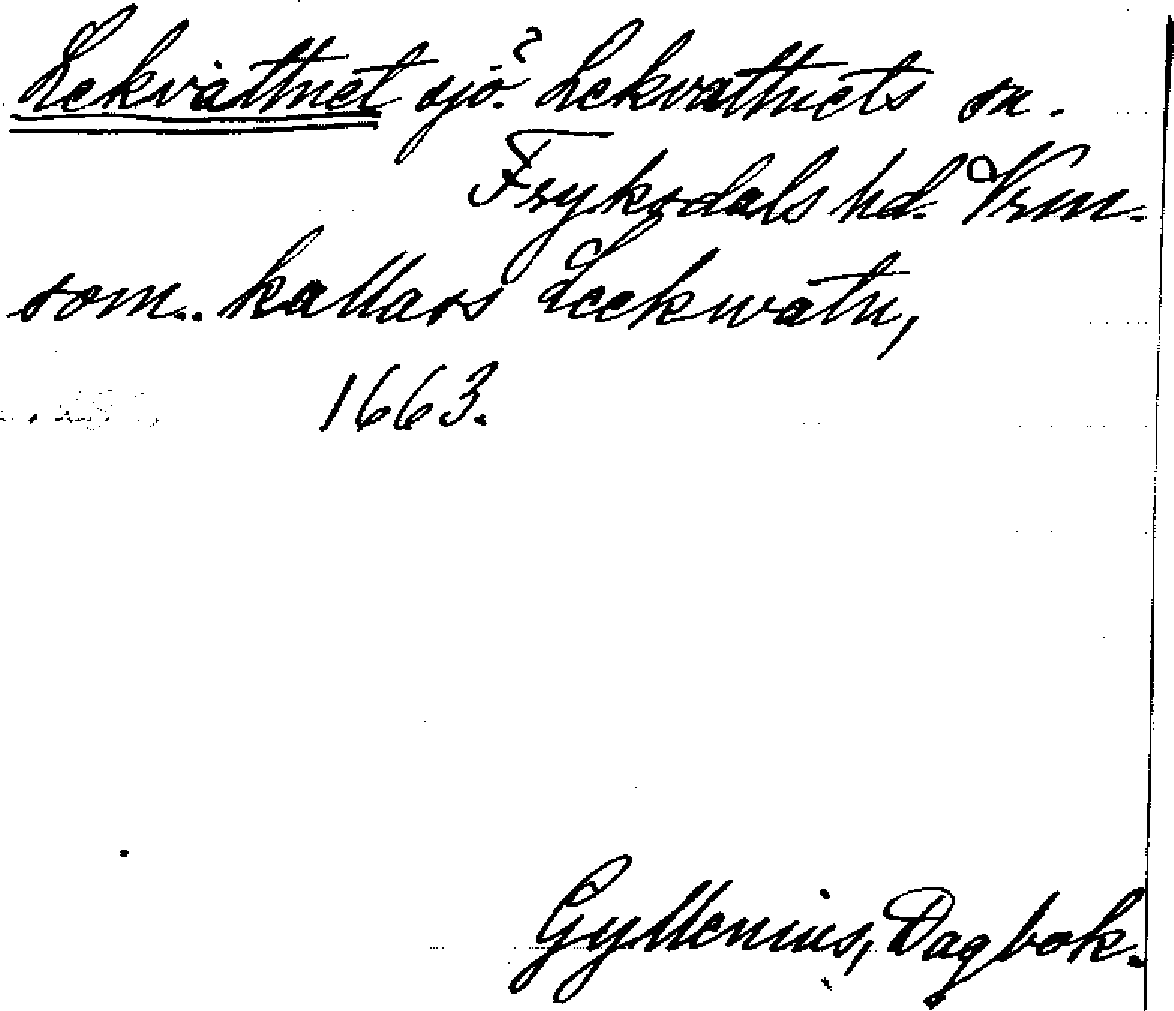 Lekvattnet sjö? Lekvattnets sn.
Fryksdals hd. Vrm.
som.. kallass Leekwatn,
1663.
Gyllenius, Dagbok.